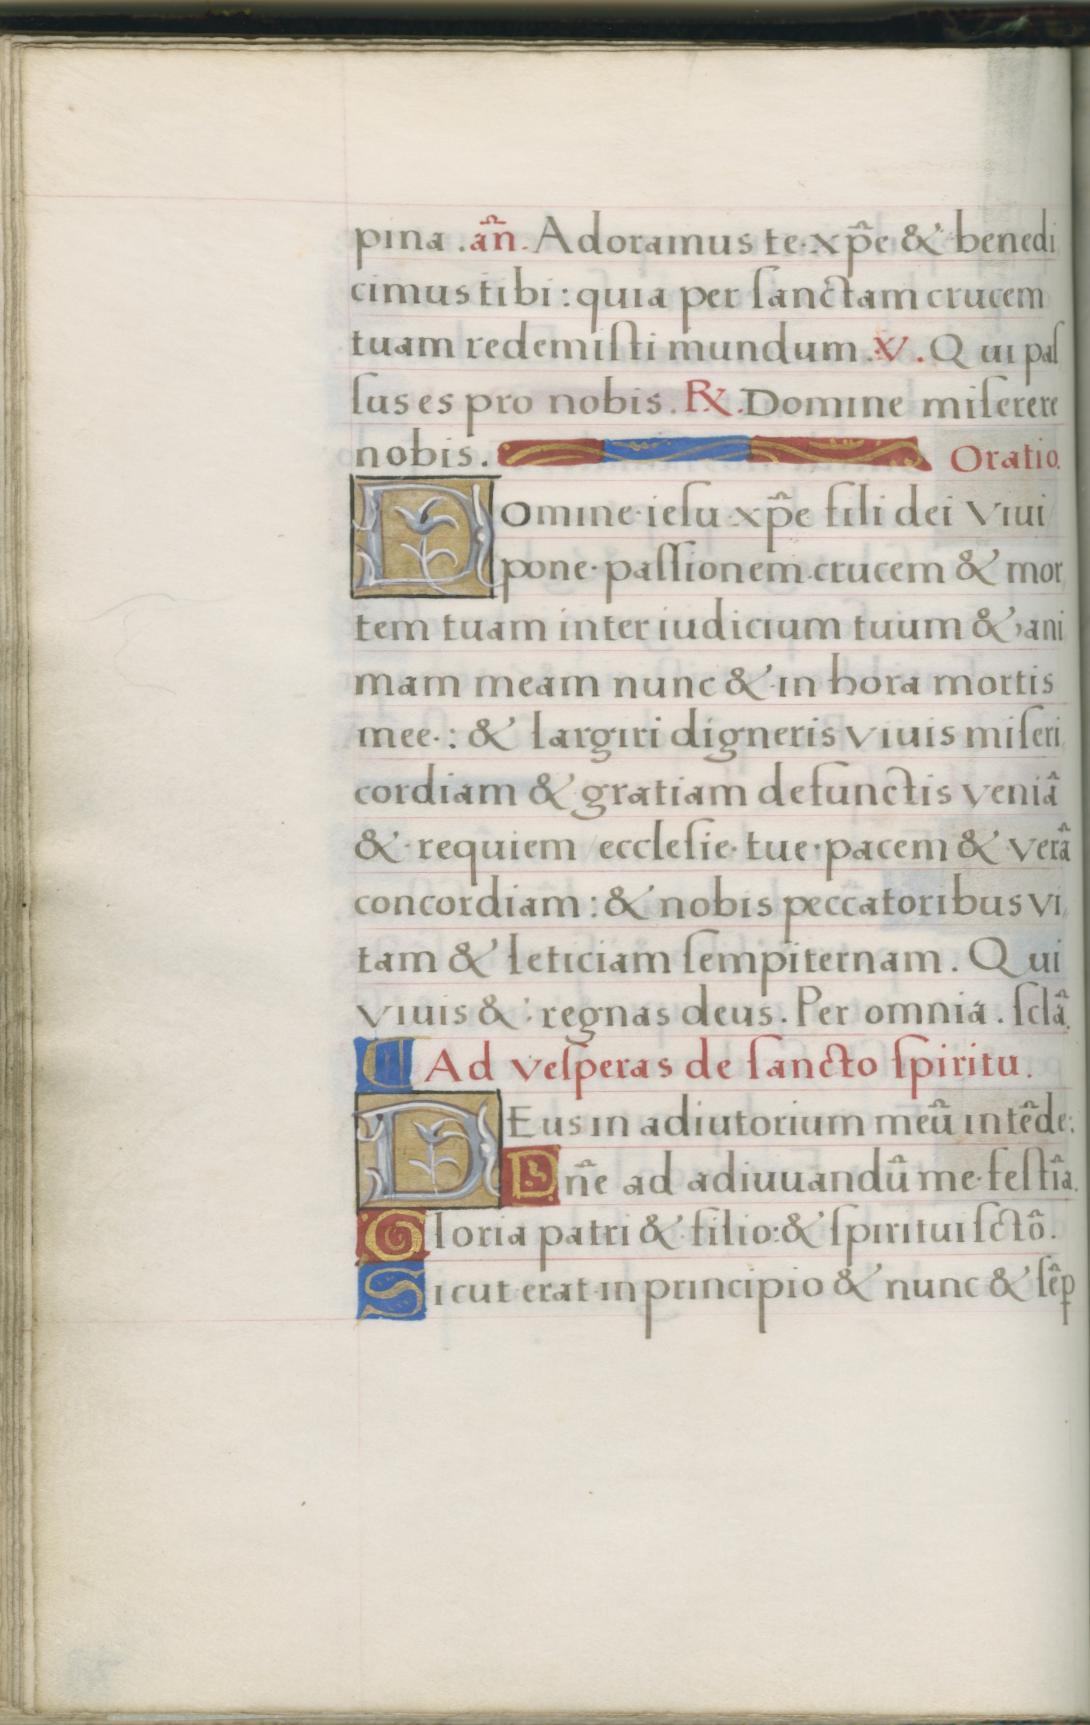 pina .añ. Adoramus te xp̃e & benedi
cimus tibi: quia per ſanctam crucem
tuam redemiſti mundum. ℣. Qui paſ
ſus es pro nobis. ℟. Domine miſerere
nobis. Oratio.
Domine ieſu xp̃e fili dei viui
pone paſſionem crucem & mor
tem tuam inter iudicium tuum & ani
mam meam nunc & in hora mortis
mee: & largiri digneris viuis miſeri
cordiam & gratiam defunctis veniã
& requiem eccleſie tue pacem & verã
concordiam: & nobis peccatoribus vi
tam & leticiam ſempiternam. Qui
viuis & regnas deus. Per omnia. ſclã.
¶ Ad veſperas de ſancto ſpiritu.
DEus in adiutorium meũ intẽde:
Dñe ad adiuuandũ me feſtĩa.
Gloria patri & filio: & ſpiritui ſctõ.
Sicut erat in principio & nunc & ſẽp